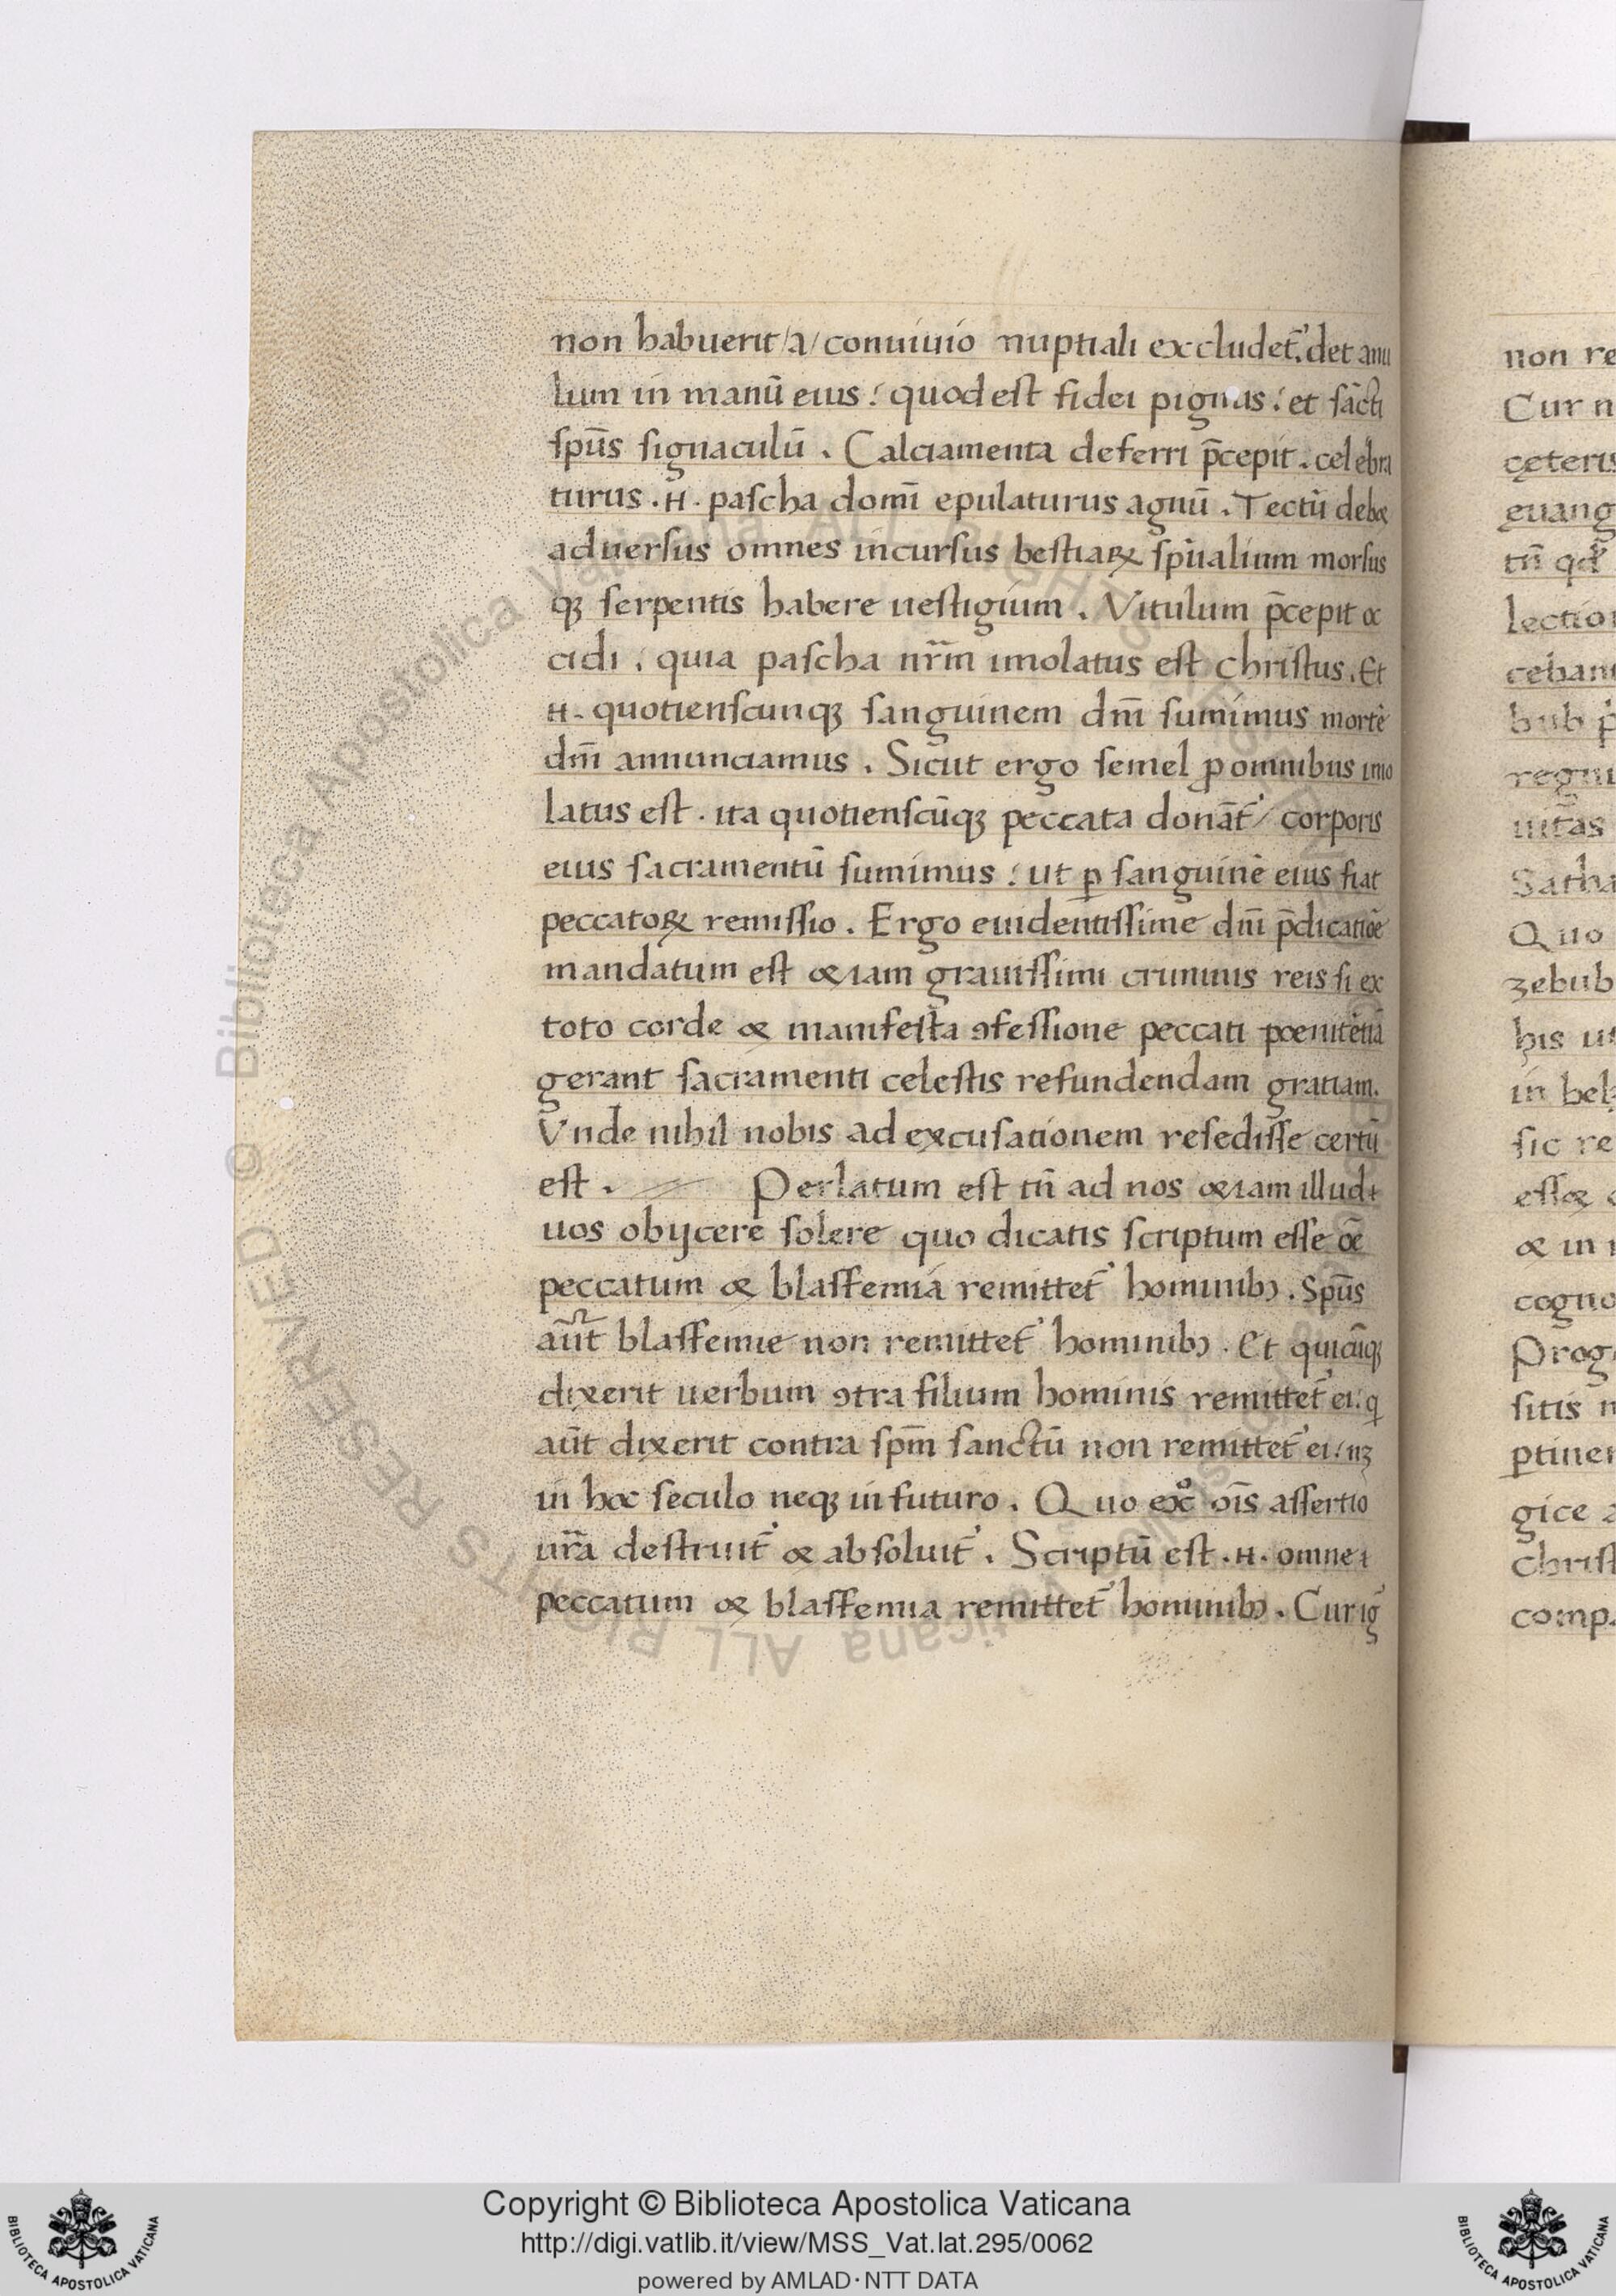 non habuerit/a/conuiuio nuptiali excludet̄. det anu
lum in manū eius: quod est fidei pignus: et sācti
sp̄us signaculū. Calciamenta deferri p̄cepit. celebra
turus .n. pascha domī epulaturus agnū. Tectū debet
aduersus omnes incursus bestiaꝝ sp̄ualium morsus
qꝫ serpentis habere uestigium. Vitulum p̄cepit oc
cidi. quia pascha nr̄m imolatus est christus. Et
.n. quotienscunqꝫ sanguinem dn̄i sumimus mortē
dn̄i annunciamus. Sicut ergo semel ꝓ omnibus imo
latus est. ita quotienscūqꝫ peccata donāt̄ / corporis
eius sacramentū sumimus: ut ꝑ sanguinē eius fiat
peccatoꝝ remissio. Ergo euidentissime dn̄i p̄dicatiōe
mandatum est & iam grauissimi criminis reis si ex
toto corde & manifesta ꝯfessione peccati poenitētiā
gerant sacramenti celestis refundendam gratiam.
Vnde nihil nobis ad excusationem resedisse certū
est. Perlatum est tn̄ ad nos &iam illud
uos obijcere solere quo dicatis scriptum esse oē
peccatum & blasfemia remittet̄ hominibꝯ. Sp̄us
aūt blasfemie non remittet̄ hominibꝯ. Et quicūqꝫ
dixerit uerbum ꝯtra filium hominis remittet̄ ei: q
aūt dixerit contra sp̄m sanctū non remittet̄ ei: nqꝫ
in hoc seculo neqꝫ in futuro. Quo exͦ oīs assertio
ur̄a destruit̄ & absoluit̄. Scriptū est .n. omne
peccatum & blasfemia remittet̄ hominibꝯ. Cur ig̃
non re
Cur n
ceteris
euang
tn̄ qd
lection
cebant
bub p
regnu
uitas
Satha
Quo
zebub
his ut
in bel
sic re
esse
& in
cogno
Prog
sitis n
ptiner
gice a
christ
comp
© Biblioteca Apostolica Vaticana ALL RIGHTS RESERVED
Copyright © Biblioteca Apostolica Vaticana
http://digi.vatlib.it/view/MSS_Vat.lat.295/0062
powered by AMLAD·NTT DATA
BIBLIOTECA APOSTOLICA VATICANA
BIBLIOTECA APOSTOLICA VATICANA